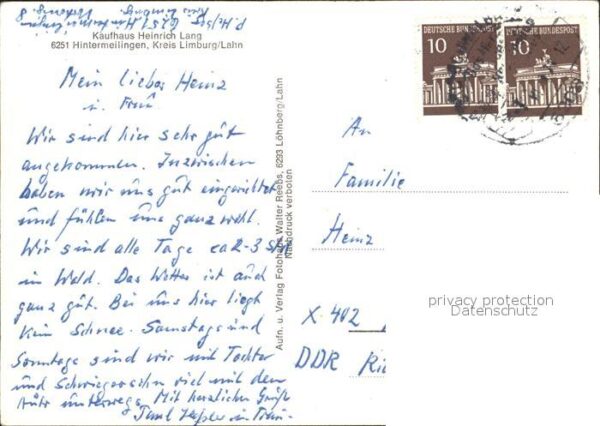 Kaufhaus Heinrich Lang
6251 Hintermeilingen, Kreis Limburg/Lahn
Mein lieber Heinz
u. Frau
Wir sind hier sehr gut
angekommen. Inzwischen
haben wir uns gut eingerichtet
und fühlen uns ganz wohl.
Wir sind alle Tage ca 2-3 Std
im Wald. Das Wetter ist auch
ganz gut. Bei uns hier liegt
kein Schnee. Samstags und
Sonntags sind wir mit Tochter
und Schwiegersohn viel mit dem
Auto unterwegs. Mit herzlichen Grüß
Aufn. u. Verlag Fotohaus Walter Reebs, 6293 Löhnberg/Lahn
Nachdruck verboten
DEUTSCHE BUNDESPOST
10
DEUTSCHE BUNDESPOST
10
An
Familie
Heinz
X. 402
DDR
privacy protection
Datenschutz